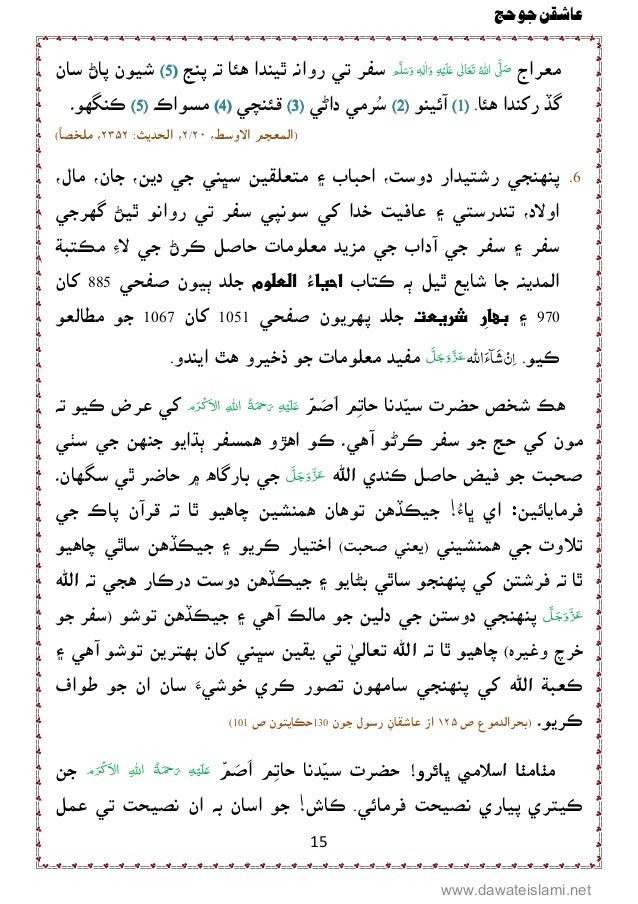 عاشقن جو حج
معراج صَلَّى اللهُ تَعَالٰى عَلَيْهِ وَاٰلِهٖ وَسَلَّم سفر تي روانہ ٿيندا هئا تہ پنج (5) شيون پاڻ سان
گڏ رکندا هئا. (1) آئينو (2) سُرمي داڻي (3) قئنچي (4) مسواڪ (5) ڪنگهو.
(المعجم الاوسط، ٢/٢٠، الحديث: ٢٣٥٢، ملخصاً)
6. پنهنجي رشتيدار دوست، احباب ۽ متعلقين سڀني جي دين، جان، مال،
اولاد، تندرستي ۽ عافيت خدا کي سونپي سفر تي روانو ٿيڻ گهرجي
سفر ۽ سفر جي آداب جي مزيد معلومات حاصل ڪرڻ جي لاءِ مڪتبة
المدينہ جا شايع ٿيل ٻہ ڪتاب احياءُ العلوم جلد ٻيون صفحي 885 کان
970 ۽ بهارِ شريعت جلد پهريون صفحي 1051 کان 1067 جو مطالعو
ڪيو. اِنْ شَآءَالله عَزَّوَجَلَّ مفيد معلومات جو ذخيرو هٿ ايندو.
هڪ شخص حضرت سيّدنا حاتِم اَصَمّ عَلَيْهِ رَحْمَةُ اللهِ الاَكْرَم کي عرض ڪيو تہ
مون کي حج جو سفر ڪرڻو آهي. ڪو اهڙو همسفر ٻڌايو جنهن جي سٺي
صحبت جو فيض حاصل ڪندي الله عَزَّوَجَلَّ جي بارگاهہ ۾ حاضر ٿي سگهان.
فرمايائين: اي ڀاءُ! جيڪڏهن توهان همنشين چاهيو ٿا تہ قرآن پاڪ جي
تلاوت جي همنشيني (يعني صحبت) اختيار ڪريو ۽ جيڪڏهن ساٿي چاهيو
ٿا تہ فرشتن کي پنهنجو ساٿي بڻايو ۽ جيڪڏهن دوست درڪار هجي تہ الله
عَزَّوَجَلَّ پنهنجي دوستن جي دلين جو مالڪ آهي ۽ جيڪڏهن توشو (سفر جو
خرچ وغيره) چاهيو ٿا تہ الله تعاليٰ تي يقين سڀني کان بهترين توشو آهي ۽
ڪعبة الله کي پنهنجي سامهون تصور ڪري خوشيءَ سان ان جو طواف
ڪريو. (بحرالدموع ص ١٢٥ از عاشقانِ رسول جون 130حڪايتون ص 101)
مٺامٺا اسلامي ڀائرو! حضرت سيّدنا حاتِم اَصَمّ عَلَيْهِ رَحْمَةُ اللهِ الاَكْرَم جن
ڪيتري پياري نصيحت فرمائي. ڪاش! جو اسان بہ ان نصيحت تي عمل
15
www.dawateislami.net